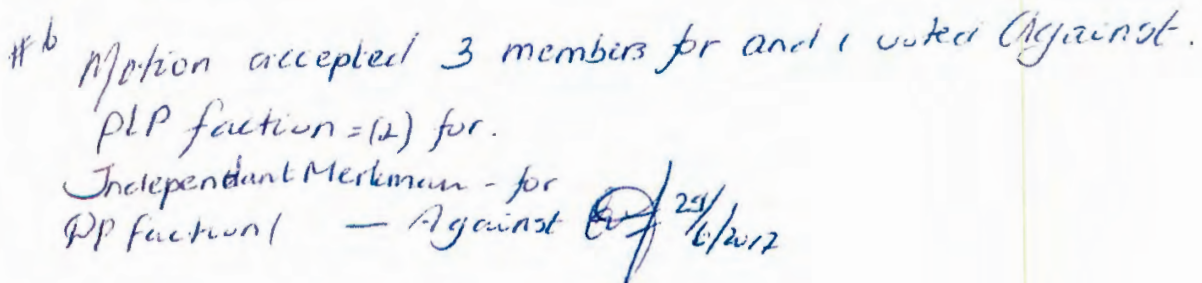 #6 Motion accepted 3 members for and 1 voted Against.
PLP faction = (2) for.
Independant Merkman - for
DP faction 1 — Against 29/6/2017